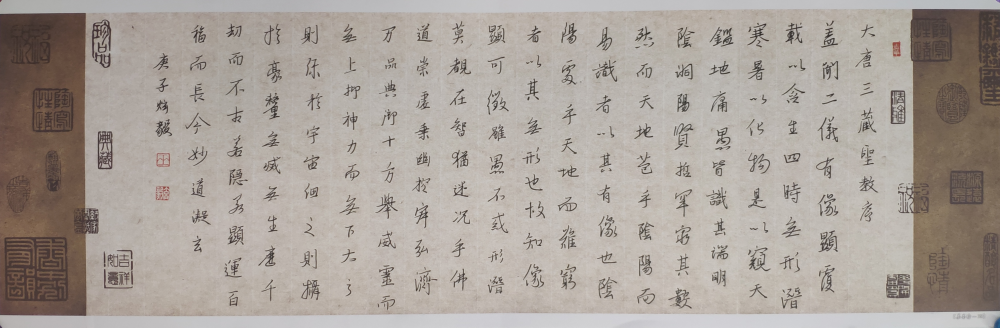 大唐三藏聖教序
蓋聞二儀有像顯覆
載以含生四時無形潛
寒暑以化物是以窺天
鑑地庸愚皆識其端明
陰洞陽賢哲罕窮其數
然而天地苞乎陰陽而
易識者以其有像也陰
陽處乎天地而難窮
者以其無形也故知像
顯可徵雖愚不惑形潛
莫覩在智猶迷況乎佛
道崇虛乘幽控寂弘濟
万品典御十方舉威靈而
無上抑神力而無下大之
則弥於宇宙細之則攝
於豪釐無滅無生歷千
劫而不古若隱若顯運百
福而長今妙道凝玄
庚子
珍品
典藏
吉祥